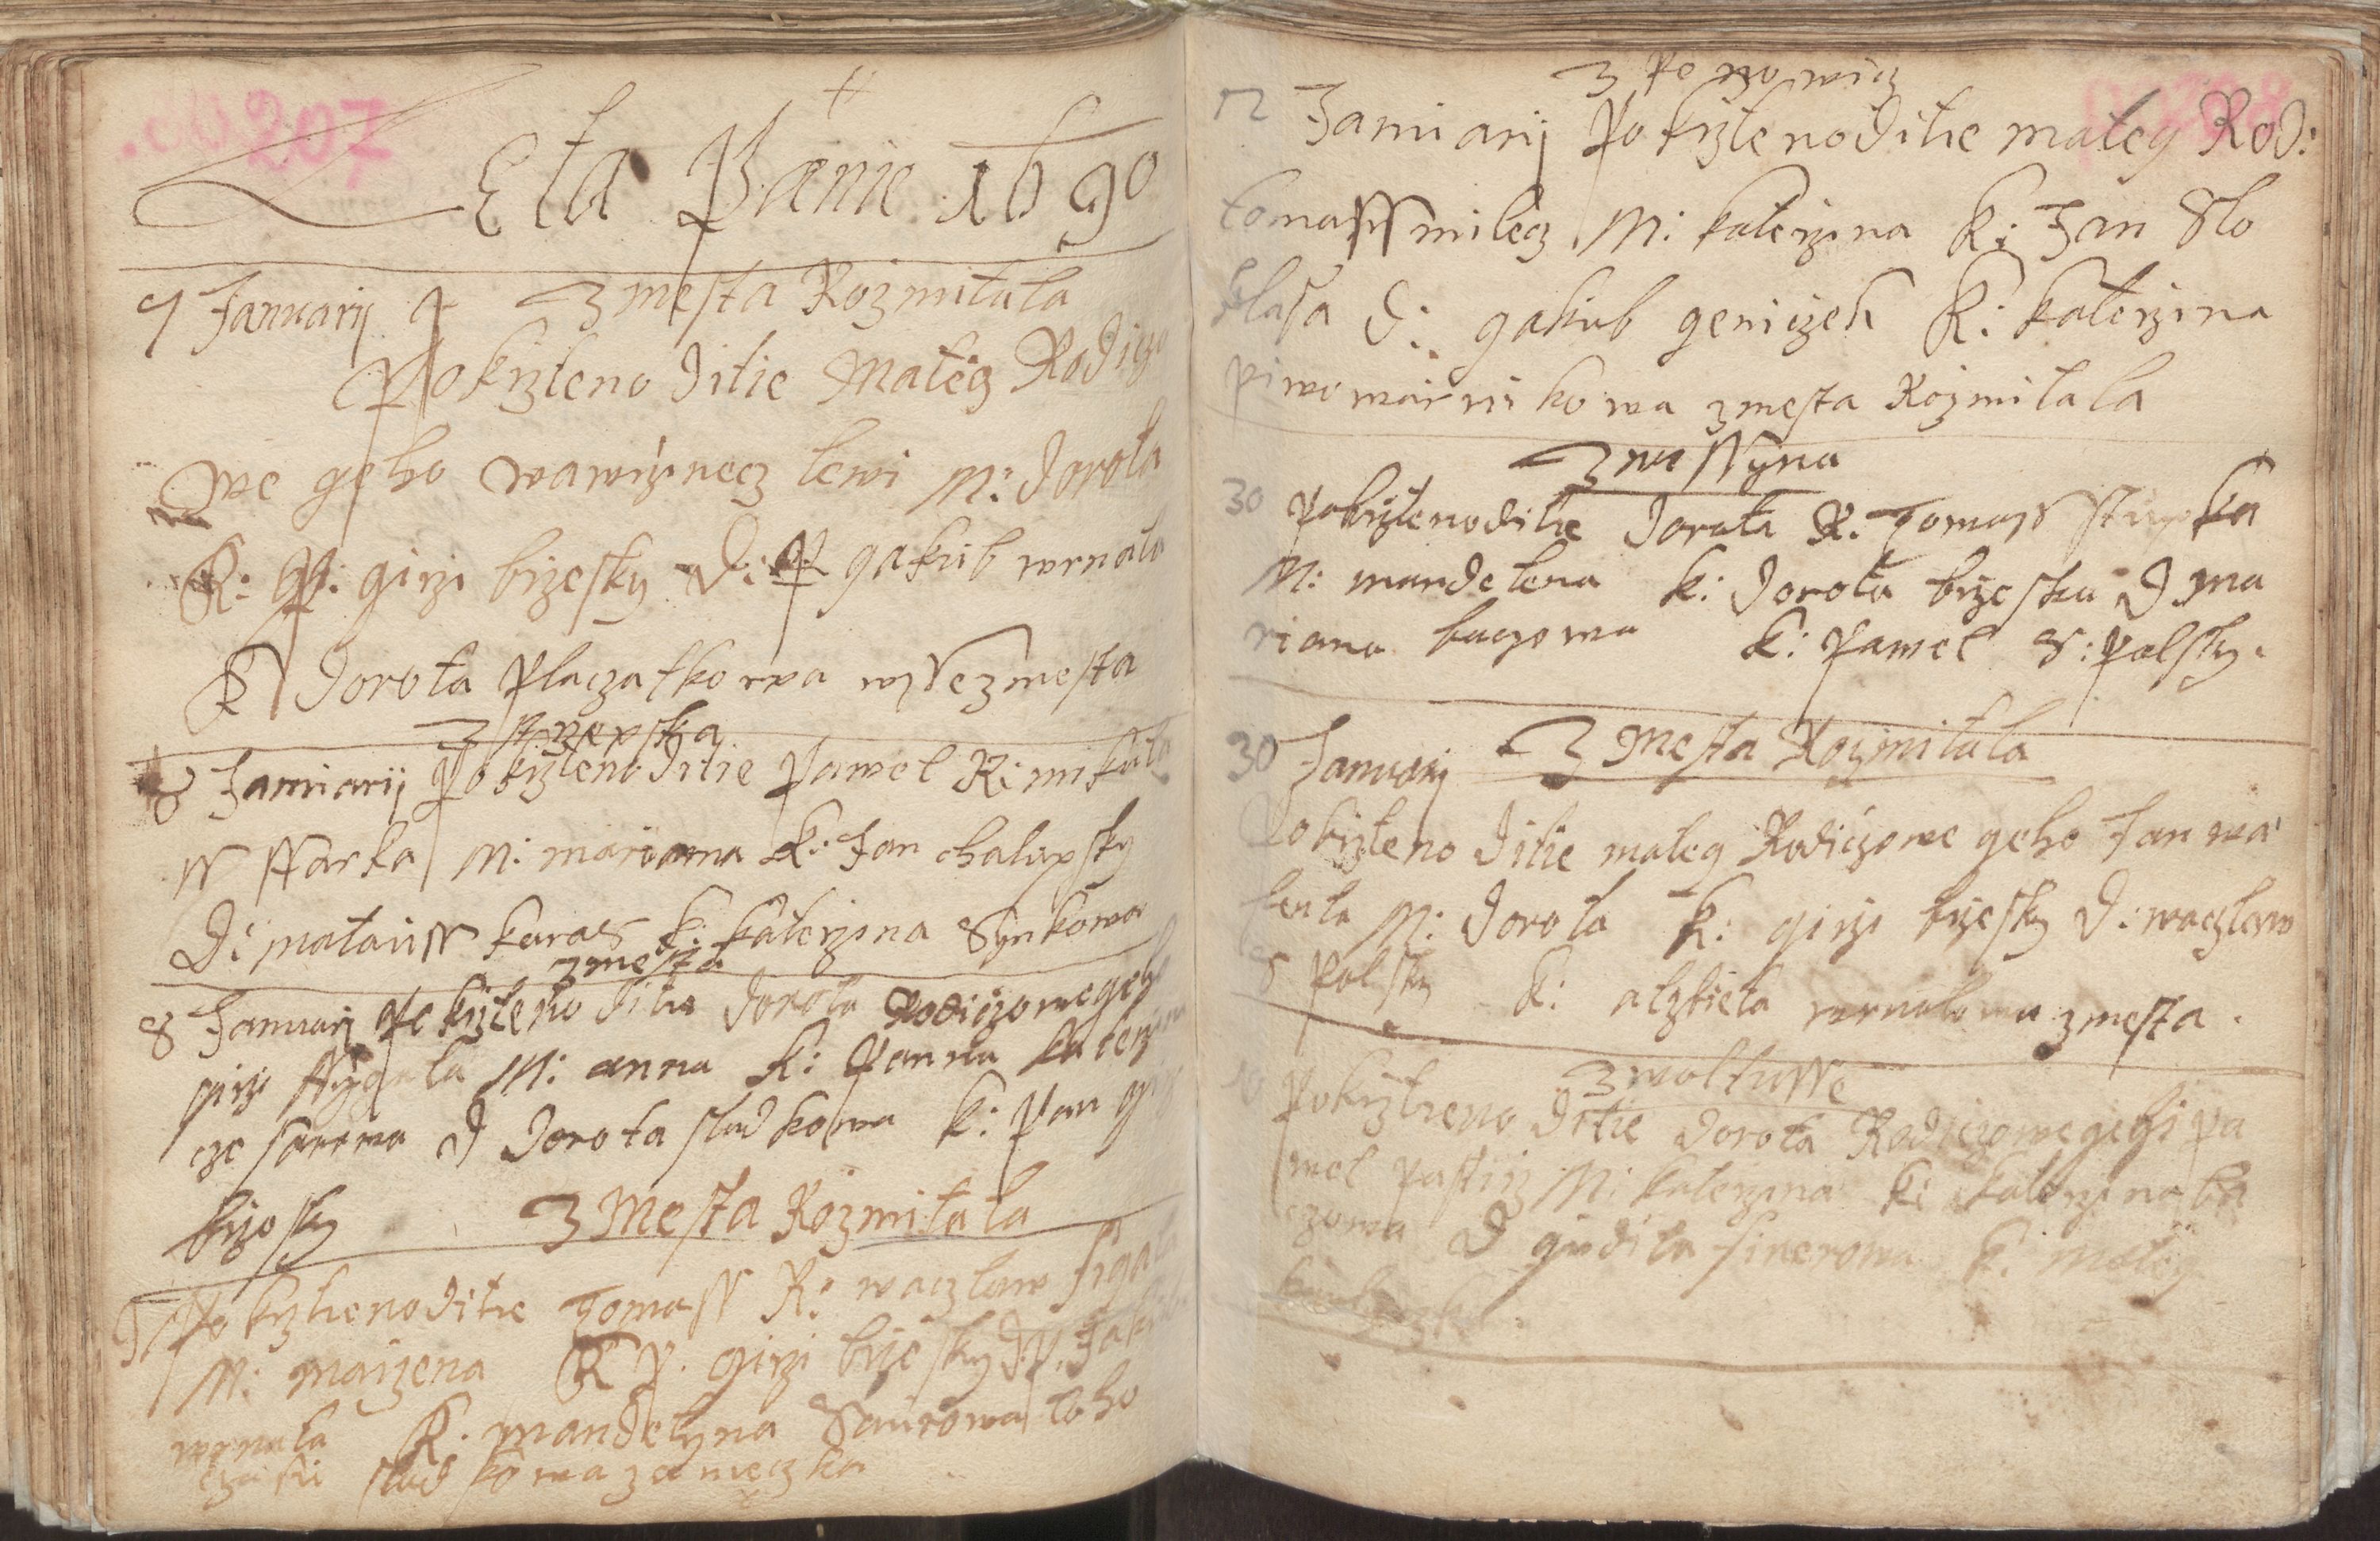 207
Leta Panie 1690
7 Januarij z mesta Rozmitala
Pokrzteno ditie Mateg Rodiczo
we geho wawrzinecz lewi M: dorota
K: P: girzi brzesky D: P gakub wrnata
K dorota placzatkowa wsse z mesta
8 Januarij Pokrzteno ditie Pawel R: mikula
ss starka M: mariana K: Jan chalupsky
D: matauss karas K: katerzina Synkowa
z mesta
8 Januarij Pokrzteno ditie dorota Rodiczowe geh
girzi M: anna K: Panna katerzi
D dorota sladkowa K: Pan g
brzesky z Mesta Rozmitala
Pokrztieno ditie Tomass R: waczlaw
M: marzena K P. girzi brzesky D: P. Jakub
wrnata K. mandelyna Saurowa toho
czasu sladkowa zameczka
Januarij Pokrzteno ditie mateg Rod:
tomass milecz M: katerzina K: Jan Slo
D: gakub geniczek K: katerzina
piwowarnikowa z mesta Rozmitala
30 Pokrzteno ditie dorota R: Tomass stupka
M: mandelena K: dorota brzeska D ma
riana K: Pawel S: Polsky.
30 Januarij z Mesta Rozmitala
Pokrzteno ditie mateg Rodiczowe geho Jan wa
M: dorota K: girzi brzesky D: waczlaw
S Polsky K: alzbieta wrnatowa z mesta.
z woltusse
Pokrztieno ditie dorota Rodiczowe gegi pa
wel M: katerzina K: katerzina ba
czowa D gudita K: mateg